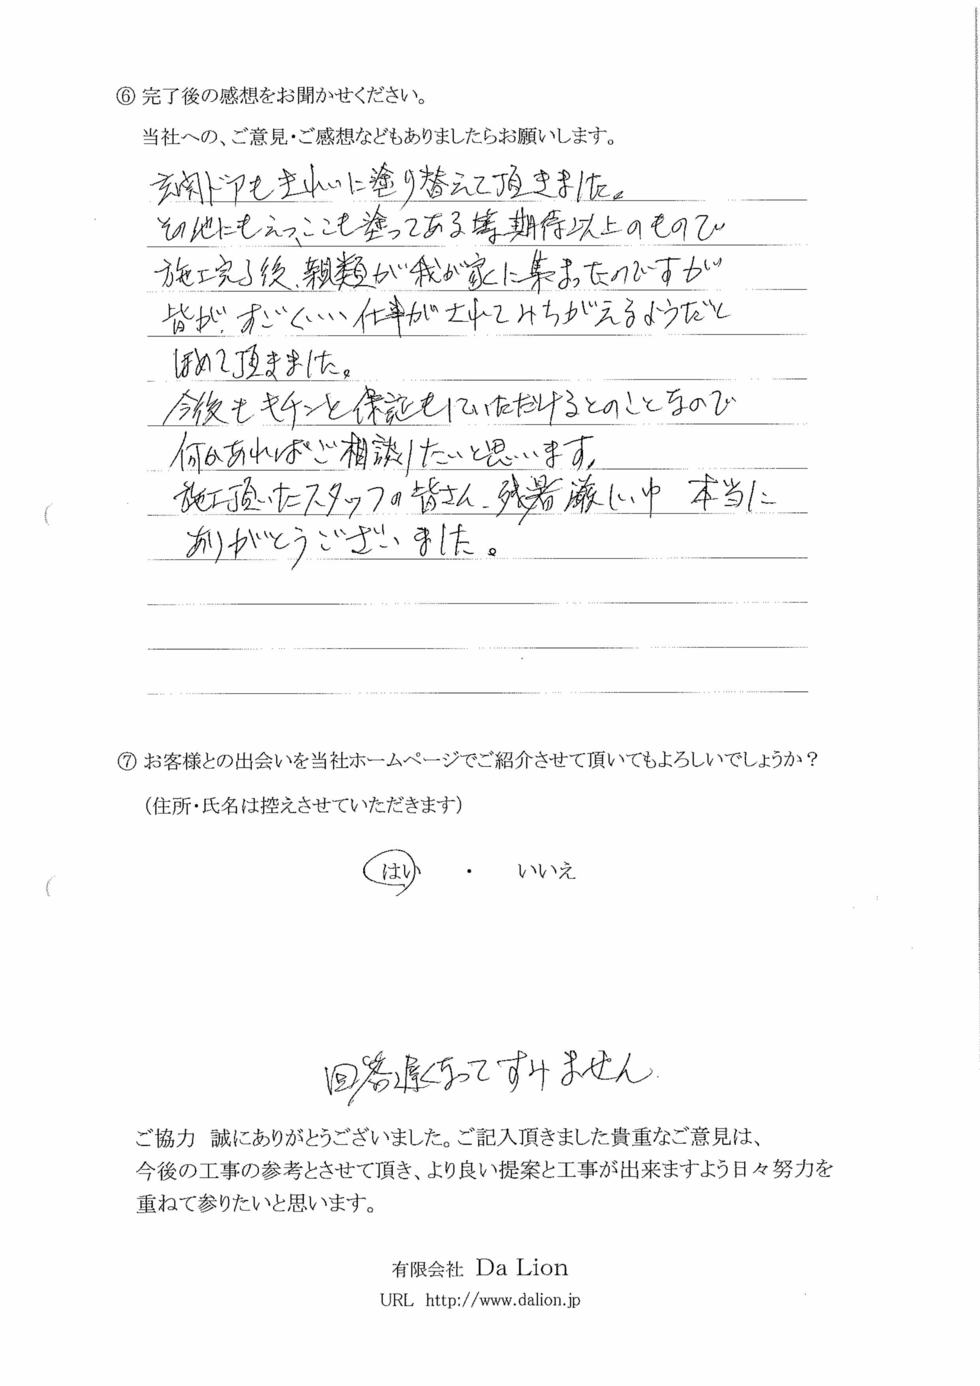 ⑥ 完了後の感想をお聞かせください。
当社への、ご意見・ご感想などもありましたらお願いします。
玄関ドアもきれいに塗り替えて頂きました。
その他にもえっ、ここも塗ってある等期待以上のもので
施工完了後、親類が我が家に集まったのですが
皆が、すごくいい仕事がされてみちがえるようだと
ほめて頂きました。
今後もキチンと保証もしていただけるとのことなので
何かあればご相談したいと思います。
施工頂いたスタッフの皆さん、残暑厳しい中 本当に
ありがとうございました。
⑦ お客様との出会いを当社ホームページでご紹介させて頂いてもよろしいでしょうか?
(住所・氏名は控えさせていただきます)
はい ・ いいえ
回答遅くなってすみません
ご協力 誠にありがとうございました。ご記入頂きました貴重なご意見は、
今後の工事の参考とさせて頂き、より良い提案と工事が出来ますよう日々努力を
重ねて参りたいと思います。
有限会社 Da Lion
URL http://www.dalion.jp